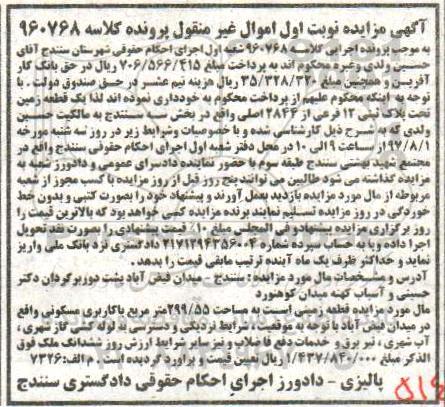 آگهی مزایده نوبت اول اموال غیر منقول پرونده کلاسه ۹۶۰۷۶۸
به موجب پرونده اجرایی کلاسه ۹۶۰۷۶۸ شعبه اول اجرای احکام حقوقی شهرستان سنندج آقای
حسین ولدی وغیره محکوم اند به پرداخت مبلغ ۷۰۶/۵۶۶/۴۱۵ ریال در حق بانک کار
آفرین و همچنین مبلغ ۳۵/۳۲۸/۳۲۰ ریال هزینه نیم عشر در حق صندوق دولت . با
توجه به اینکه محکوم علیهم از پرداخت محکوم به خودداری نموده اند لذا یک قطعه زمین
تحت پلاک ثبتی ۱۲ فرعی از ۲۸۴۴ اصلی واقع در بخش سه سنندج به مالکیت حسین
ولدی که به شرح ذیل کارشناسی شده و با خصوصیات وشرایط زیر در روز سه شنبه مورخه
۹۷/۸/۱ از ساعت ۹ الی ۱۰ در محل دفتر شعبه اول اجرای احکام حقوقی سنندج واقع در
مجتمع شهید بهشتی سنندج طبقه سوم با حضور نماینده دادسرای عمومی و دادورز شعبه به
مزایده گذاشته می شود طالبین می توانند پنج روز قبل از روز مزایده با کسب مجوز از شعبه
مربوطه از مال مورد مزایده بازدید بعمل آورند و پیشنهاد خود را بصورت کتبی و بدون خط
خوردگی در روز مزایده تسلیم نمایند برنده مزایده کسی خواهد بود که بالاترین قیمت را
روز برگزاری مزایده پیشنهاد و فی المجلس مبلغ ۱۰٪ قیمت پیشنهادی را بصورت نقد تحویل
اجرا داده ویا به حساب سپرده شماره ۲۱۷۱۲۹۴۳۵۶۰۰۴ دادگستری نزد بانک ملی واریز
نماید و حداکثر ظرف یک ماه آینده ترتیب مابقی قیمت را بدهد .
آدرس و مشخصات مال مورد مزایده : سنندج - میدان فیض آباد پشت دوربرگردان دکتر
حسینی و آسیاب کهنه میدان کوهنورد
مال مورد مزایده قطعه زمینی است به مساحت ۲۹۹/۵۵ متر مربع باکاربری مسکونی واقع
در میدان فیض آباد با توجه به موقعیت ، شرایط نزدیکی و دسترسی به لوله کشی گاز شهری ،
آب شهری ، تیر برق و خدمات دفع فاضلاب و نیز سایر شرایط ارزش روز ششدانگ ملک فوق
الذکر مبلغ ۱/۴۳۷/۸۴۰/۰۰۰ ریال تعیین قیمت و برآورد گردیده است . م الف: ۷۳۲۶
پالیزی - دادورز اجرای احکام حقوقی دادگستری سنندج